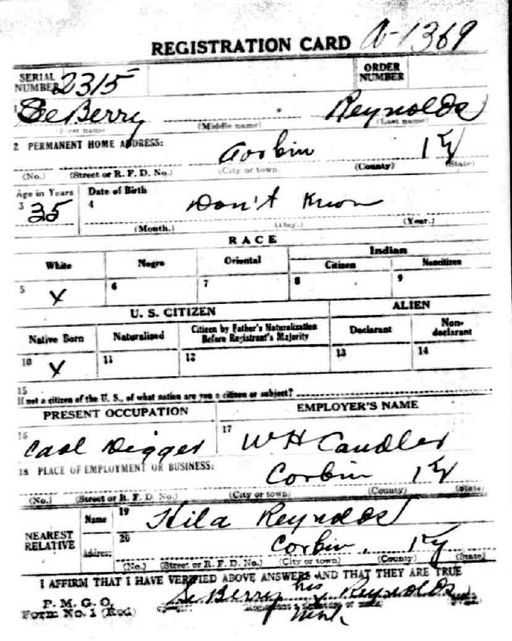 REGISTRATION CARD A-1369
SERIAL NUMBER 2315 ORDER NUMBER
SeBerry Reynolds
(First name) (Middle name) (Last name)
2 PERMANENT HOME ADDRESS: Corbin Ky
(No.) (Street or R. F. D. No.) (City or town) (County) (State)
Age in Years Date of Birth
3 35 4 Don't Know
(Month.) (Day.) (Year.)
RACE
White Negro Oriental Indian
Citizen Noncitizen
5 X 6 7 8 9
U. S. CITIZEN ALIEN
Native Born Naturalized Citizen by Father's Naturalization Before Registrant's Majority Declarant Non-declarant
10 X 11 12 13 14
15
If not a citizen of the U. S., of what nation are you a citizen or subject?
PRESENT OCCUPATION EMPLOYER'S NAME
16 Coal Digger 17 W H Candler
18 PLACE OF EMPLOYMENT OR BUSINESS: Corbin Ky
(No.) (Street or R. F. D. No.) (City or town) (County) (State)
NEAREST RELATIVE Name 19 Hila Reynolds
Address: 20 Corbin, Ky
(No.) (Street or R. F. D. No.) (City or town) (County) (State)
I AFFIRM THAT I HAVE VERIFIED ABOVE ANSWERS AND THAT THEY ARE TRUE
P. M. G. O.
Form No. 1 (Red) SeBerry his Reynolds
mark